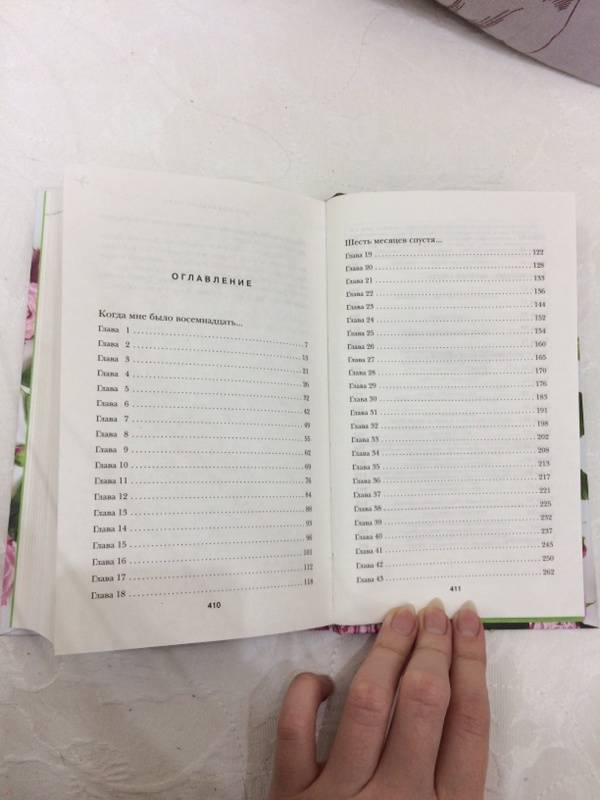 ОГЛАВЛЕНИЕ
Когда мне было восемнадцать...
Глава 1 ........ 7
Глава 2 ........ 13
Глава 3 ........ 21
Глава 4 ........ 26
Глава 5 ........ 32
Глава 6 ........ 42
Глава 7 ........ 49
Глава 8 ........ 55
Глава 9 ........ 62
Глава 10 ........ 69
Глава 11 ........ 76
Глава 12 ........ 84
Глава 13 ........ 88
Глава 14 ........ 93
Глава 15 ........ 96
Глава 16 ........ 101
Глава 17 ........ 112
Глава 18 ........ 118
410
Шесть месяцев спустя...
Глава 19 ........ 122
Глава 20 ........ 128
Глава 21 ........ 133
Глава 22 ........ 136
Глава 23 ........ 144
Глава 24 ........ 152
Глава 25 ........ 154
Глава 26 ........ 160
Глава 27 ........ 165
Глава 28 ........ 170
Глава 29 ........ 176
Глава 30 ........ 183
Глава 31 ........ 191
Глава 32 ........ 198
Глава 33 ........ 202
Глава 34 ........ 208
Глава 35 ........ 213
Глава 36 ........ 217
Глава 37 ........ 221
Глава 38 ........ 225
Глава 39 ........ 232
Глава 40 ........ 237
Глава 41 ........ 243
Глава 42 ........ 250
Глава 43 ........ 262
411